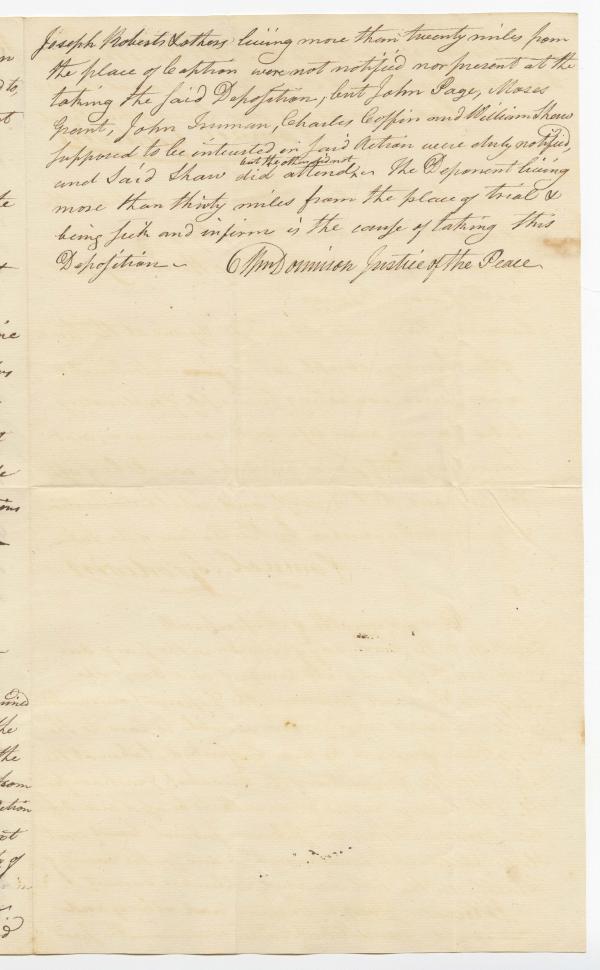 Joseph Roberts & others living more than twenty miles from
the place of Caption were not notified nor present at the
taking the said Deposition, but John Page, Moses
Grant, John Truman, Charles Coffin and William Shaw
supposed to be intrusted in said Action were duly notified,
but the others did not
and said Shaw did attend. The Deponent living
more than thirty miles from the place of trial &
being sick and infirm is the cause of taking this
Deposition
Wm Donnison Justice of the Peace